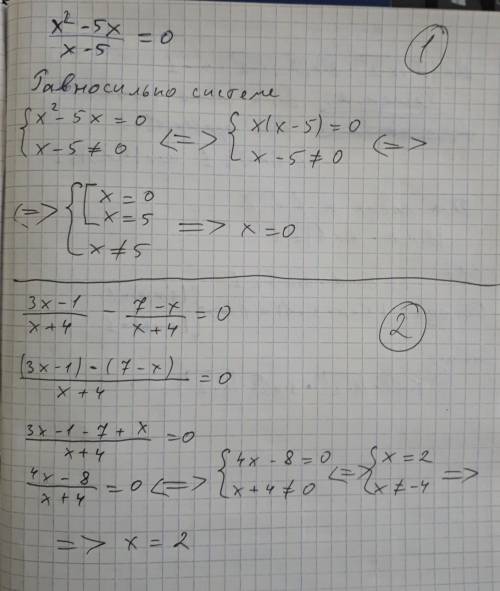 x² - 5x / x - 5 = 0
1
Равносильно системе
{ x² - 5x = 0 <=> { x(x - 5) = 0 <=>
{ x - 5 ≠ 0 { x - 5 ≠ 0
<=> { [ x = 0
[ x = 5 => x = 0
{ x ≠ 5
3x - 1 / x + 4 - 7 - x / x + 4 = 0
2
(3x - 1) - (7 - x) / x + 4 = 0
3x - 1 - 7 + x / x + 4 = 0
4x - 8 / x + 4 = 0 <=> { 4x - 8 = 0 <=> { x = 2 =>
{ x + 4 ≠ 0 { x ≠ -4
=> x = 2